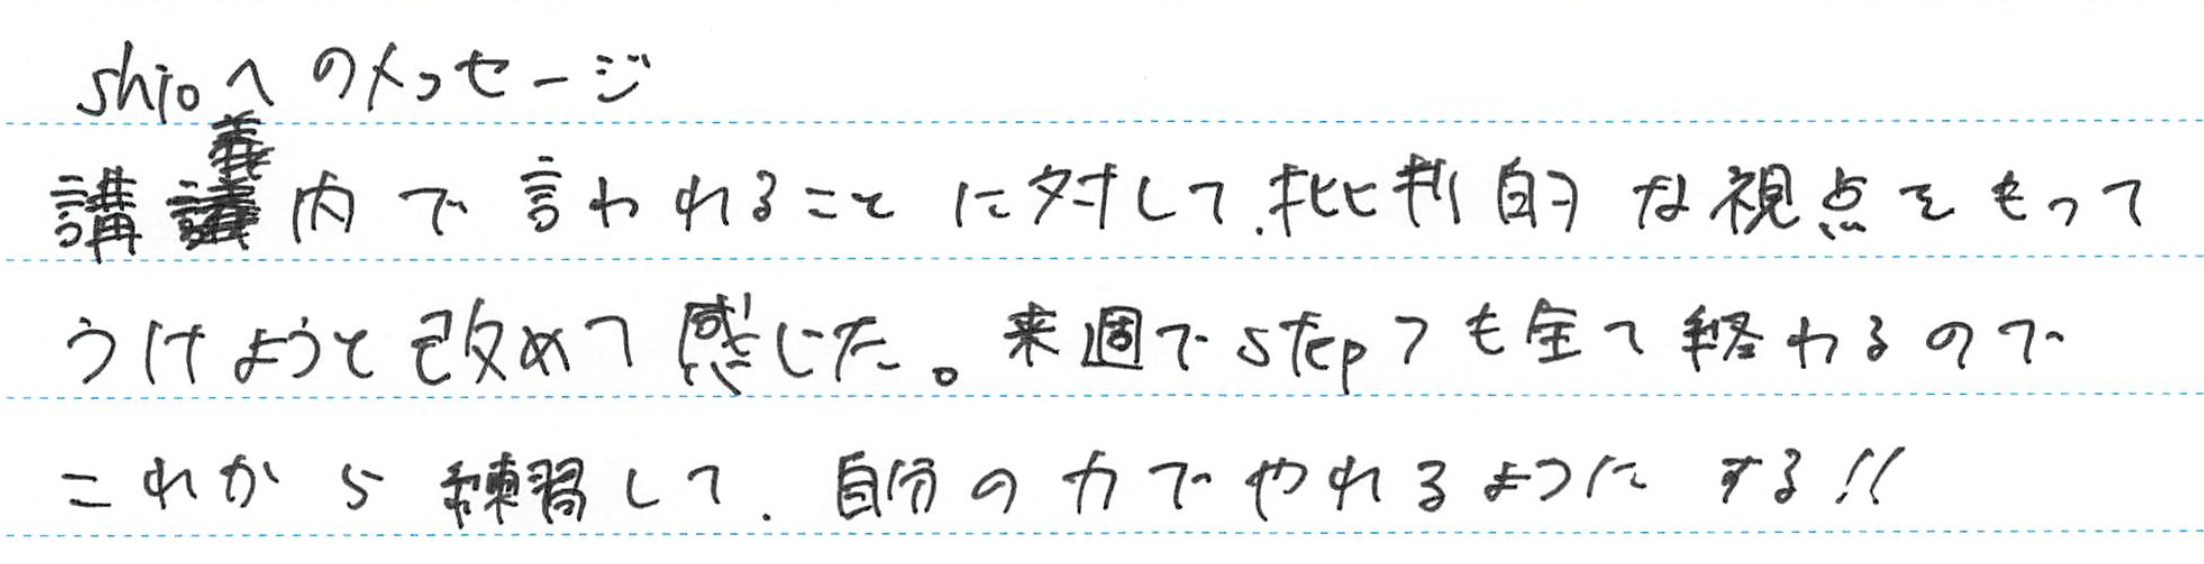 shioへのメッセージ
講義内で言われることに対して.批判的な視点をもって
うけようと改めて感じた。来週でstep7も全て終わるので
これから練習して.自分の力でやれるようにする!!